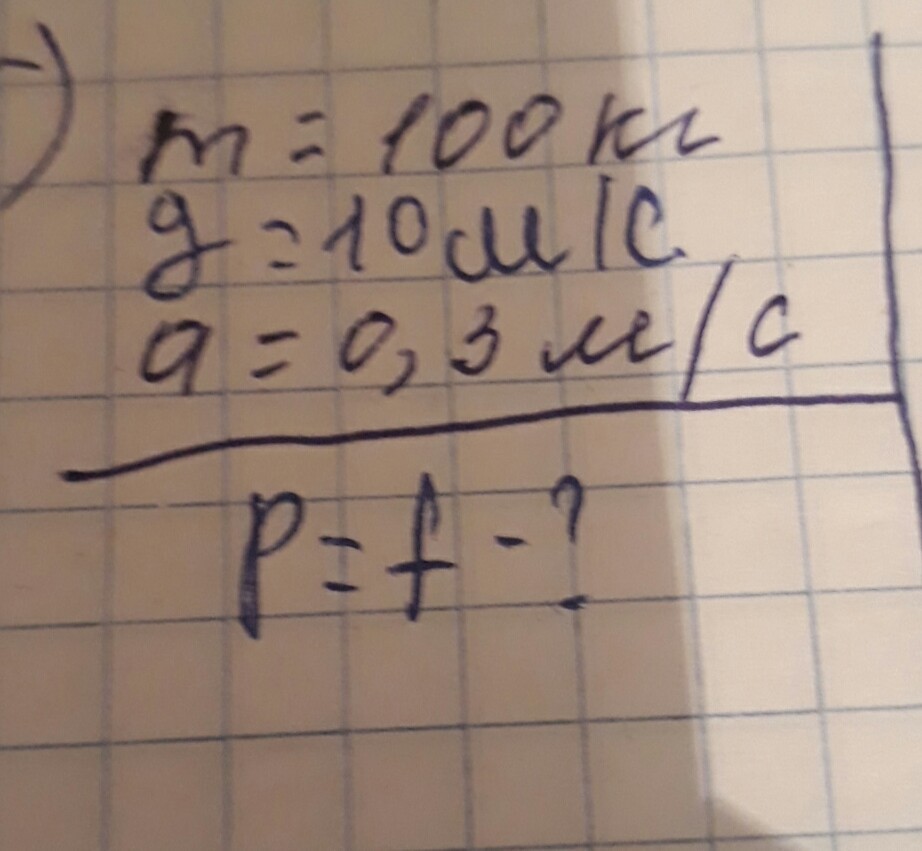 )
m = 100 кг
g = 10 м/с
a = 0,3 м/с
p = f - ?